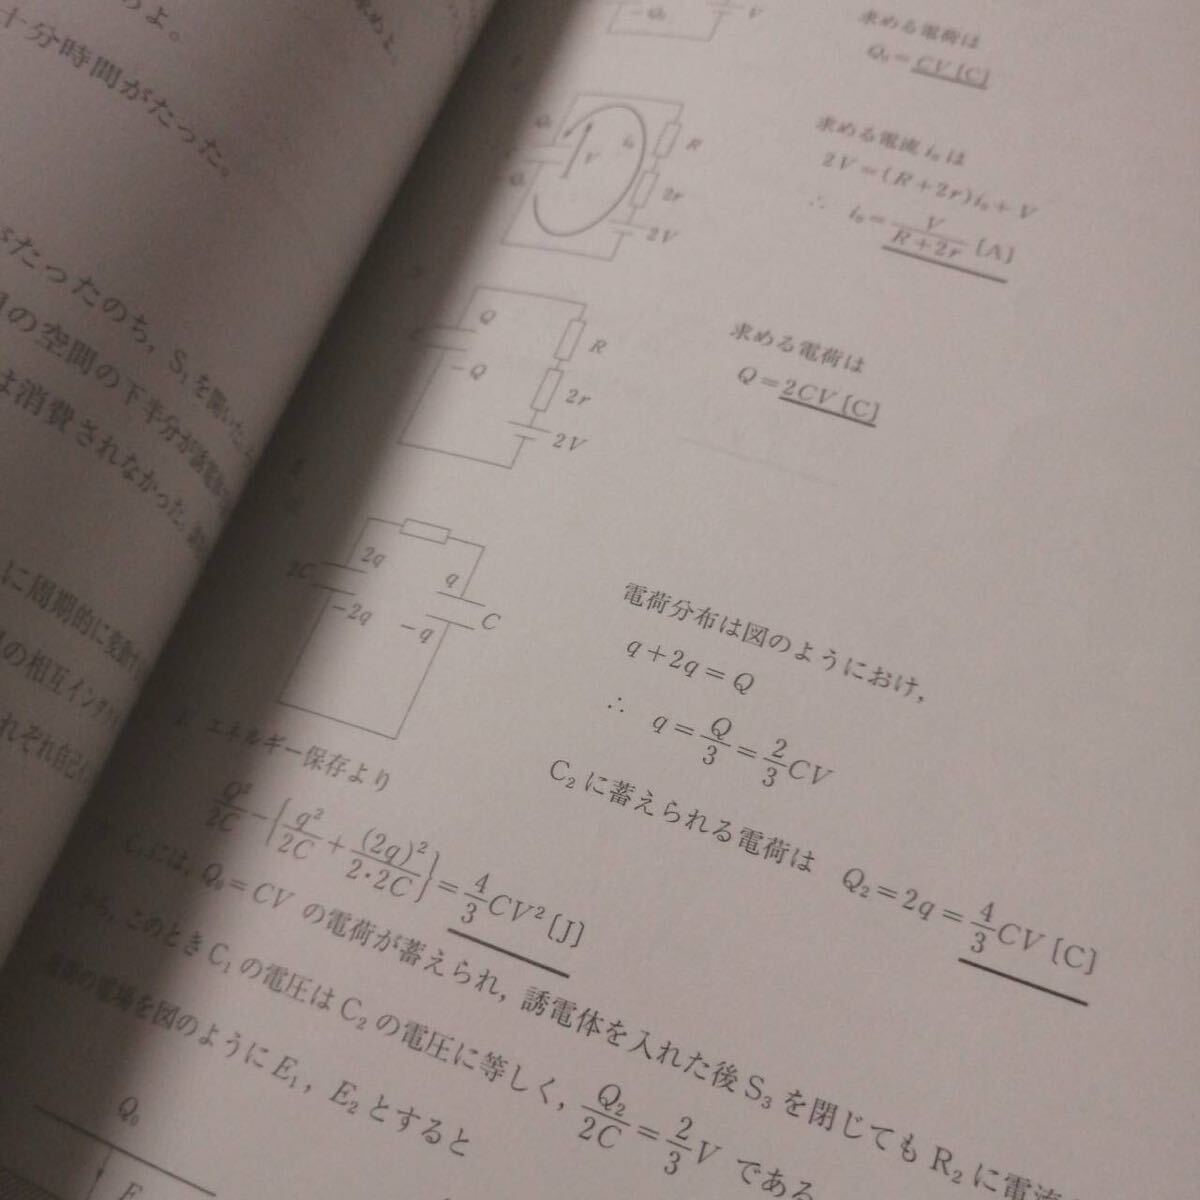 のよ。
求めよ。
十分時間がたった。
がたったのち，S₁を開いた。
の空間の下半分が誘電体
は消費されなかった。
に周期的に変動
の相互インダク
れぞれ自己
-Q₀ V
求める電荷は
Q₀=CV [C]
Q₀ V i₀ R
2r
2V
求める電流 i₀ は
2V=(R+2r)i₀+V
∴ i₀=V/(R+2r) [A]
Q R
-Q 2r
2V
求める電荷は
Q=2CV [C]
2C 2q q
-2q -q C
電荷分布は図のようにおけ，
q+2q=Q
∴ q=Q/3=2/3 CV
C₂に蓄えられる電荷は Q₂=2q=4/3 CV [C]
エネルギー保存より
Q²/2C-{q²/2C+(2q)²/2・2C}=4/3 CV² [J]
C₁には，Q₀=CV の電荷が蓄えられ，誘電体を入れた後S₃を閉じてもR₂に電流
から，このときC₁の電圧はC₂の電圧に等しく，Q₂/2C=2/3 V である
の電場を図のようにE₁，E₂とすると
Q₀
E